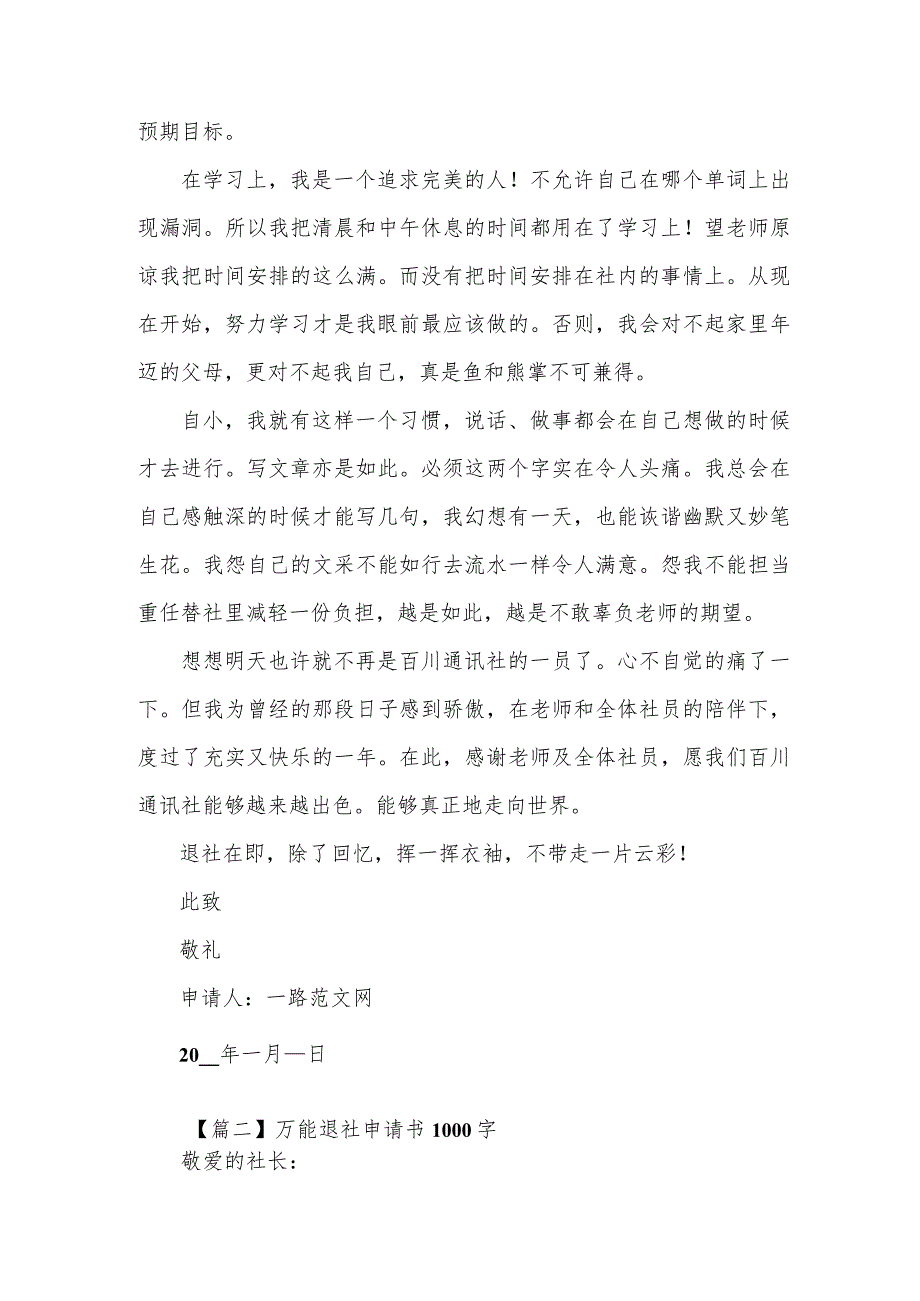 预期目标。
在学习上，我是一个追求完美的人！不允许自己在哪个单词上出
现漏洞。所以我把清晨和中午休息的时间都用在了学习上！望老师原
谅我把时间安排的这么满。而没有把时间安排在社内的事情上。从现
在开始，努力学习才是我眼前最应该做的。否则，我会对不起家里年
迈的父母，更对不起我自己，真是鱼和熊掌不可兼得。
自小，我就有这样一个习惯，说话、做事都会在自己想做的时候
才去进行。写文章亦是如此。必须这两个字实在令人头痛。我总会在
自己感触深的时候才能写几句，我幻想有一天，也能诙谐幽默又妙笔
生花。我怨自己的文采不能如行去流水一样令人满意。怨我不能担当
重任替社里减轻一份负担，越是如此，越是不敢辜负老师的期望。
想想明天也许就不再是百川通讯社的一员了。心不自觉的痛了一
下。但我为曾经的那段日子感到骄傲，在老师和全体社员的陪伴下，
度过了充实又快乐的一年。在此，感谢老师及全体社员，愿我们百川
通讯社能够越来越出色。能够真正地走向世界。
退社在即，除了回忆，挥一挥衣袖，不带走一片云彩！
此致
敬礼
申请人：一路范文网
20__年一月—日
【篇二】万能退社申请书1000字
敬爱的社长：